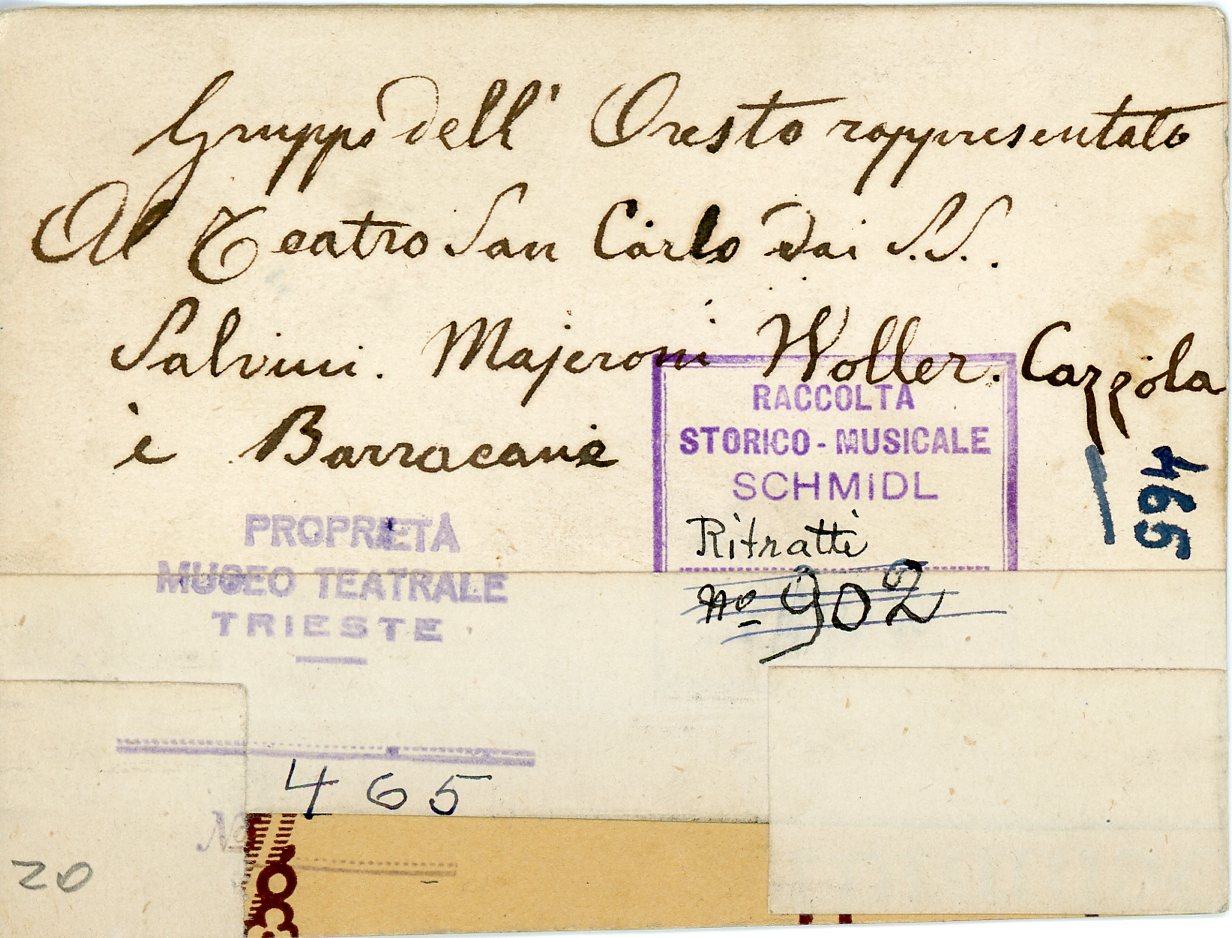 Gruppo dell' Oresto rappresentato
Al Teatro San Carlo dai S.S.
Salvini. Majeroni Woller. Cazzola
è Barracani
RACCOLTA
STORICO - MUSICALE
SCHMIDL
Ritratti
No 902
465
PROPRIETÀ
MUSEO TEATRALE
TRIESTE
465
No
20